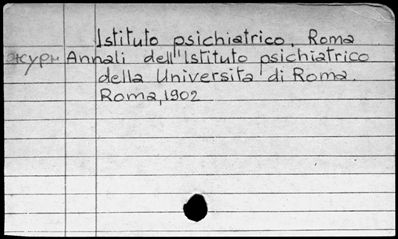 Istituto psichiatrico. Roma
журн Annali dell'Istituto psichiatrico
della Universita di Roma.
Roma, 1902